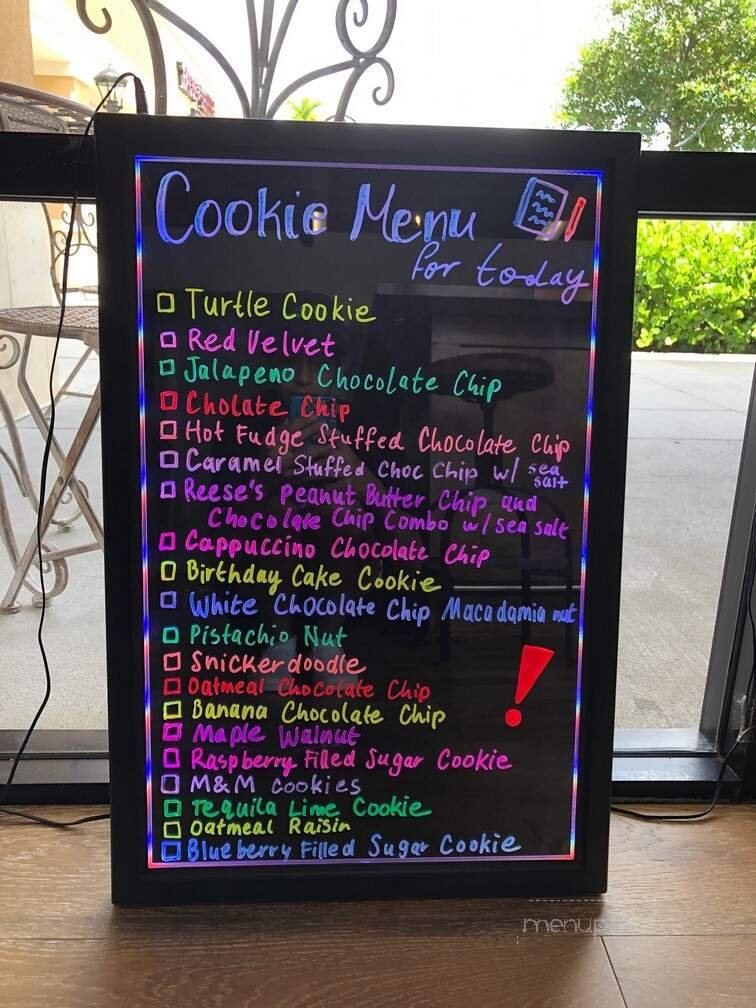 Cookie Menu
for today
Turtle Cookie
Red Velvet
Jalapeno Chocolate Chip
Cholate Chip
Hot Fudge Stuffed Chocolate Chip
Caramel Stuffed Choc Chip w/ sea salt
Reese's Peanut Butter Chip and
Chocolate Chip Combo w/ sea salt
Cappuccino Chocolate Chip
Birthday Cake Cookie
White Chocolate Chip Macadamia nut
Pistachio Nut
Snickerdoodle
Oatmeal Chocolate Chip
Banana Chocolate Chip
Maple Walnut
Raspberry Filled Sugar Cookie
M&M cookies
Tequila Lime Cookie
Oatmeal Raisin
Blueberry Filled Sugar Cookie
!